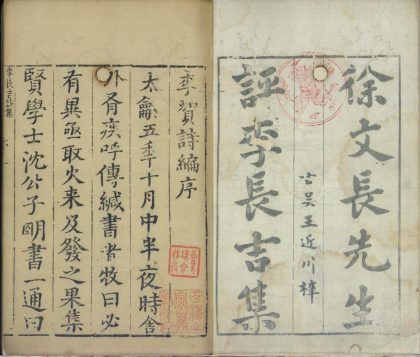 徐文長先生
評李長吉集
古吳王近川梓
李賀詩編序
太龢五秊十月中半夜時舍
外有疾呼傳緘書者牧曰必
有異亟取火来及發之果集
賢學士沈公子朙書一通曰